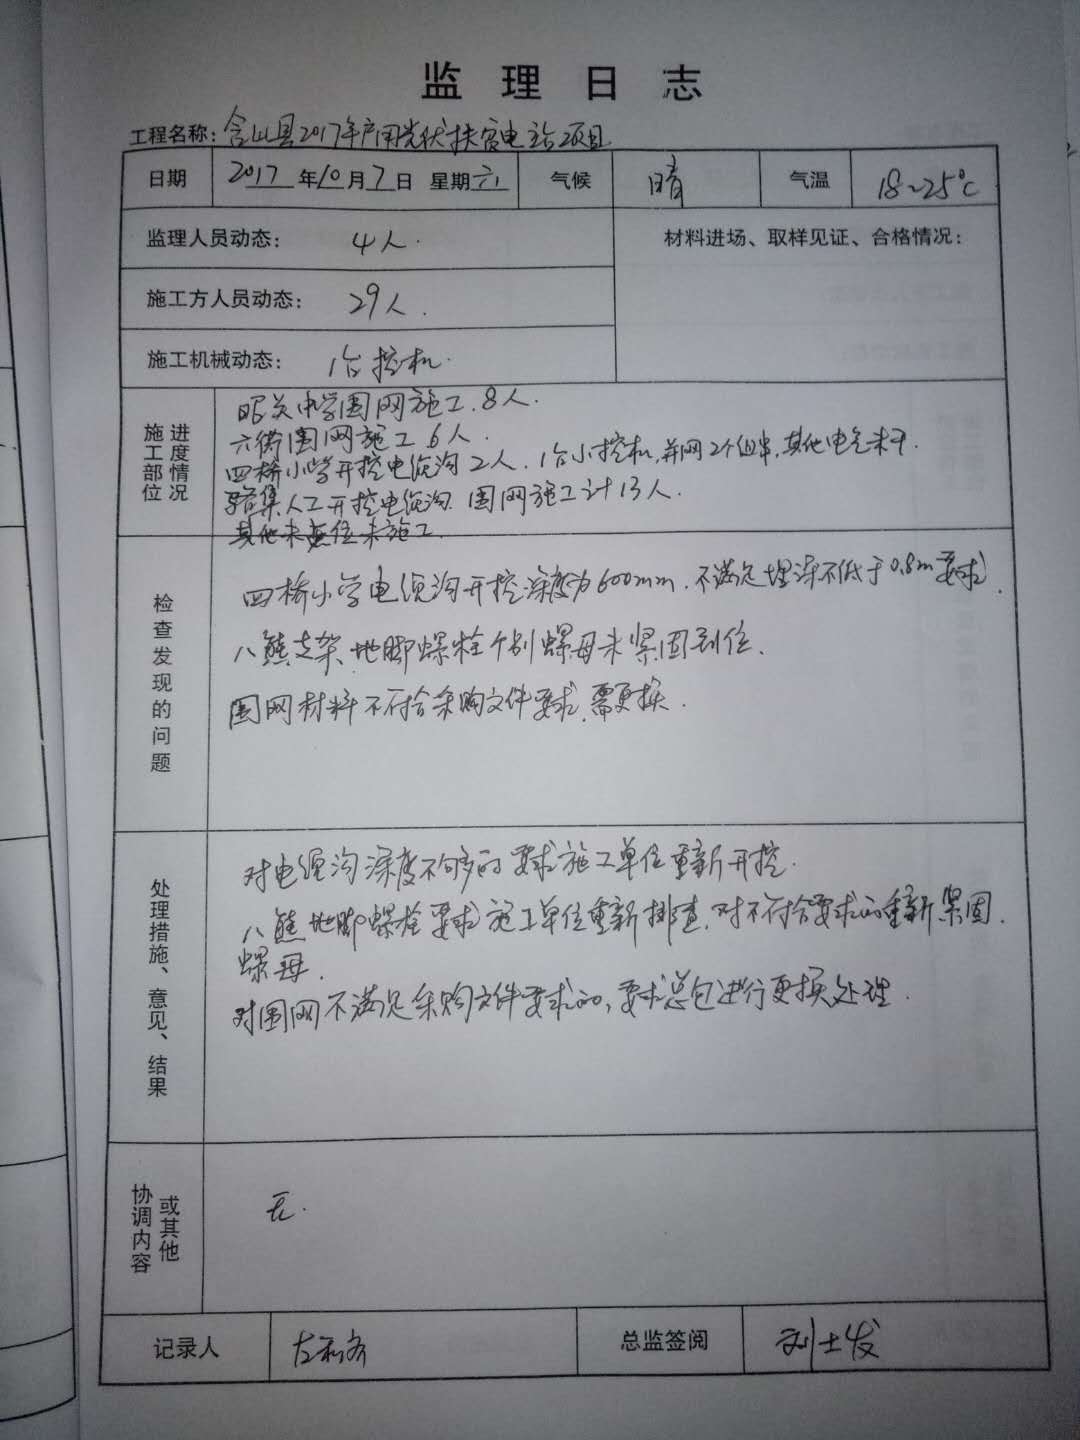 监理日志
工程名称：含山县2017年户用光伏扶贫电站项目
日期 2017年10月7日 星期六 气候 晴 气温 18~25℃
监理人员动态： 4人. 材料进场、取样见证、合格情况：
施工方人员动态： 29人.
施工机械动态： 1台挖机.
施工部位 进度情况
昭关中学围网施工.8人.
六衖围网施工6人.
四桥小学开挖电缆沟2人.1台小挖机,并网2个组串,其他电气未干.
骆集人工开挖电缆沟.围网施工计13人.
其他未点位未施工.
检查发现的问题
四桥小学电缆沟开挖深度为600mm.不满足埋深不低于0.8m要求.
八熊支架、地脚螺栓个别螺母未紧固到位、
围网材料不符合采购文件要求,需更换.
处理措施、意见、结果
对电缆沟深度不够的要求施工单位重新开挖.
八熊地脚螺栓要求施工单位重新排查,对不符合要求的重新紧固
螺母.
对围网不满足采购文件要求的,要求总包进行更换处理.
协调内容 或其他
无.
记录人 总监签阅 刘士发